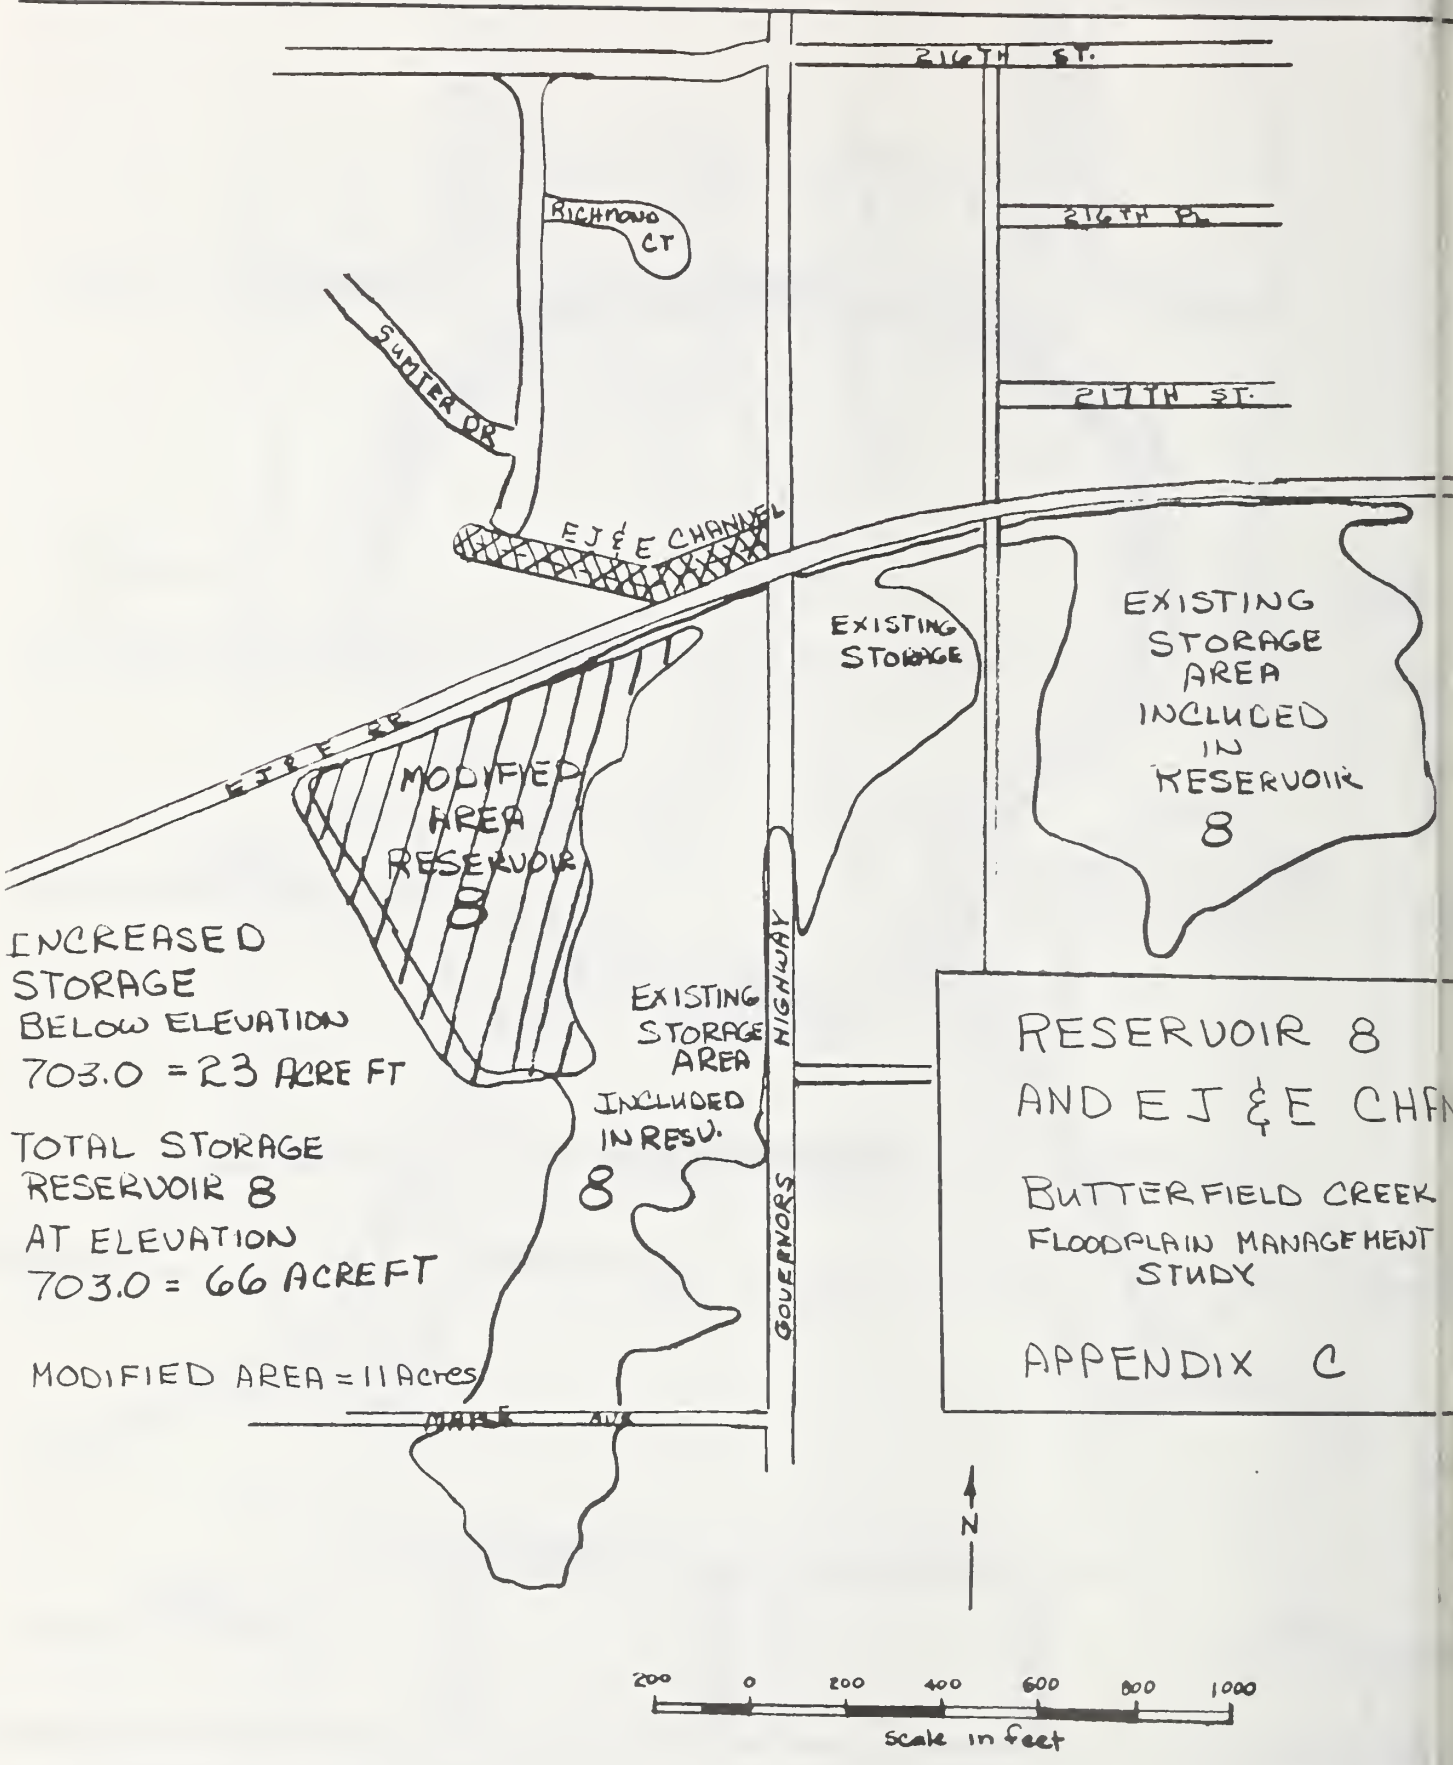 216TH ST.
RICHMOND
CT
216TH PL
SUMTER DR
217TH ST.
E J & E CHANNEL
EXISTING
STORAGE
EXISTING
STORAGE
AREA
INCLUDED
IN
RESERVOIR
8
E J & E RR
MODIFIED
AREA
RESERVOIR
8
INCREASED
STORAGE
BELOW ELEVATION
703.0 = 23 ACRE FT
TOTAL STORAGE
RESERVOIR 8
AT ELEVATION
703.0 = 66 ACRE FT
MODIFIED AREA = 11 Acres
EXISTING
STORAGE
AREA
INCLUDED
IN RESV.
8
GOVERNORS HIGHWAY
MAPLE AVE
RESERVOIR 8
AND E J & E CHAN
BUTTERFIELD CREEK
FLOODPLAIN MANAGEMENT
STUDY
APPENDIX C
N
200 0 200 400 600 800 1000
scale in feet